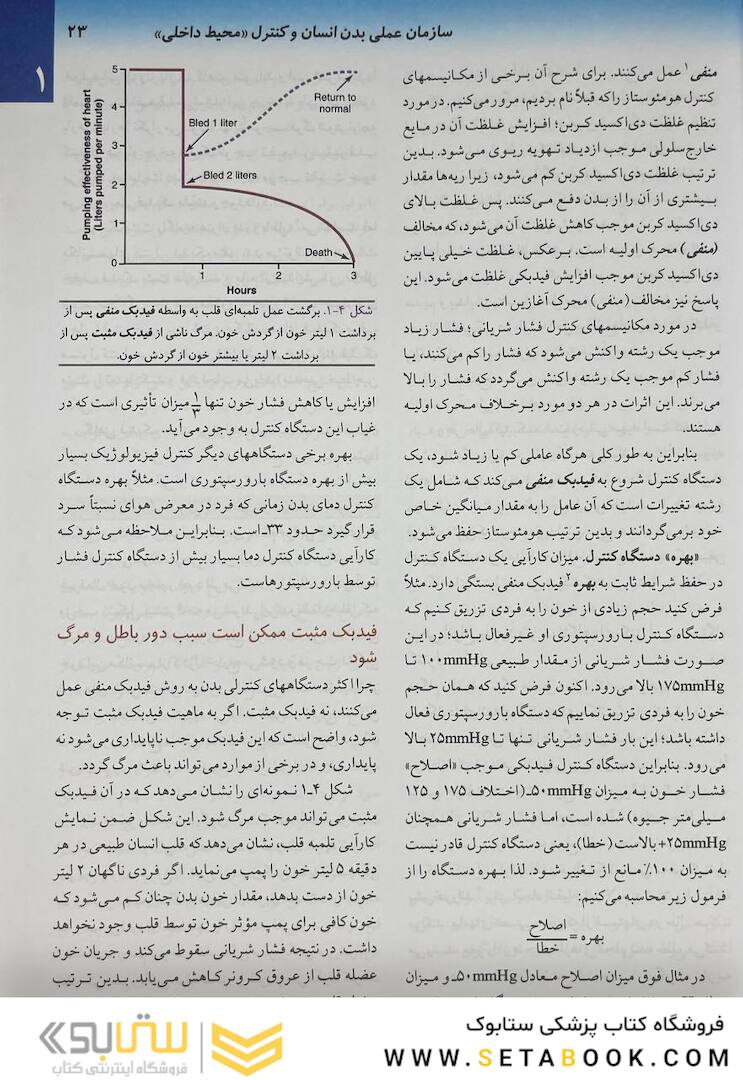 سازمان عملی بدن انسان و کنترل «محیط داخلی» ۲۳
۱
منفی۱ عمل می‌کنند. برای شرح آن برخی از مکانیسمهای
کنترل هومئوستاز را که قبلاً نام بردیم، مرور می‌کنیم. در مورد
تنظیم غلظت دی‌اکسید کربن؛ افزایش غلظت آن در مایع
خارج‌سلولی موجب ازدیاد تهویه ریوی می‌شود. بدین
ترتیب غلظت دی‌اکسید کربن کم می‌شود، زیرا ریه‌ها مقدار
بیشتری از آن را از بدن دفع می‌کنند. پس غلظت بالای
دی‌اکسید کربن موجب کاهش غلظت آن می‌شود، که مخالف
(منفی) محرک اولیه است. برعکس، غلظت خیلی پایین
دی‌اکسید کربن موجب افزایش فیدبکی غلظت می‌شود. این
پاسخ نیز مخالف (منفی) محرک آغازین است.
در مورد مکانیسمهای کنترل فشار شریانی؛ فشار زیاد
موجب یک رشته واکنش می‌شود که فشار را کم می‌کنند، یا
فشار کم موجب یک رشته واکنش می‌گردد که فشار را بالا
می‌برند. این اثرات در هر دو مورد برخلاف محرک اولیه
هستند.
بنابراین به طور کلی هرگاه عاملی کم یا زیاد شود، یک
دستگاه کنترل شروع به فیدبک منفی می‌کند که شامل یک
رشته تغییرات است که آن عامل را به مقدار میانگین خاص
خود برمی‌گردانند و بدین ترتیب هومئوستاز حفظ می‌شود.
«بهره» دستگاه کنترل. میزان کارآیی یک دستگاه کنترل
در حفظ شرایط ثابت به بهره۲ فیدبک منفی بستگی دارد. مثلاً
فرض کنید حجم زیادی از خون را به فردی تزریق کنیم که
دستگاه کنترل بارورسپتوری او غیرفعال باشد؛ در این
صورت فشار شریانی از مقدار طبیعی ۱۰۰mmHg تا
۱۷۵mmHg بالا می‌رود. اکنون فرض کنید که همان حجم
خون را به فردی تزریق نماییم که دستگاه بارورسپتوری فعال
داشته باشد؛ این بار فشار شریانی تنها تا ۲۵mmHg بالا
می‌رود. بنابراین دستگاه کنترل فیدبکی موجب «اصلاح»
فشار خون به میزان ۵۰mmHg-(اختلاف ۱۷۵ و ۱۲۵
میلی‌متر جیوه) شده است، اما فشار شریانی همچنان
۲۵mmHg+ بالاست (خطا)، یعنی دستگاه کنترل قادر نیست
به میزان ۱۰۰٪ مانع از تغییر شود. لذا بهره دستگاه را از
فرمول زیر محاسبه می‌کنیم:
بهره = اصلاح
خطا
در مثال فوق میزان اصلاح معادل ۵۰mmHg- و میزان
Pumping effectiveness of heart
(Liters pumped per minute)
5
4
3
2
1
0
Return to
normal
Bled 1 liter
Bled 2 liters
Death
1 2 3
Hours
شکل ۴-۱. برگشت عمل تلمبه‌ای قلب به واسطه فیدبک منفی پس از
برداشت ۱ لیتر خون از گردش خون. مرگ ناشی از فیدبک مثبت پس از
برداشت ۲ لیتر یا بیشتر خون از گردش خون.
افزایش یا کاهش فشار خون تنها ۱/۳ میزان تأثیری است که در
غیاب این دستگاه کنترل به وجود می‌آید.
بهره برخی دستگاههای دیگر کنترل فیزیولوژیک بسیار
بیش از بهره دستگاه بارورسپتوری است. مثلاً بهره دستگاه
کنترل دمای بدن زمانی که فرد در معرض هوای نسبتاً سرد
قرار گیرد حدود ۳۳- است. بنابراین ملاحظه می‌شود که
کارآیی دستگاه کنترل دما بسیار بیش از دستگاه کنترل فشار
توسط بارورسپتورهاست.
فیدبک مثبت ممکن است سبب دور باطل و مرگ
شود
چرا اکثر دستگاههای کنترلی بدن به روش فیدبک منفی عمل
می‌کنند، نه فیدبک مثبت. اگر به ماهیت فیدبک مثبت توجه
شود، واضح است که این فیدبک موجب ناپایداری می‌شود نه
پایداری، و در برخی از موارد می‌تواند باعث مرگ گردد.
شکل ۴-۱ نمونه‌ای را نشان می‌دهد که در آن فیدبک
مثبت می‌تواند موجب مرگ شود. این شکل ضمن نمایش
کارآیی تلمبه قلب، نشان می‌دهد که قلب انسان طبیعی در هر
دقیقه ۵ لیتر خون را پمپ می‌نماید. اگر فردی ناگهان ۲ لیتر
خون از دست بدهد، مقدار خون بدن چنان کم می‌شود که
خون کافی برای پمپ مؤثر خون توسط قلب وجود نخواهد
داشت. در نتیجه فشار شریانی سقوط می‌کند و جریان خون
عضله قلب از عروق کرونر کاهش می‌یابد. بدین ترتیب
فروشگاه کتاب پزشکی ستابوک
WWW.SETABOOK.COM
ستابوک
فروشگاه اینترنتی کتاب